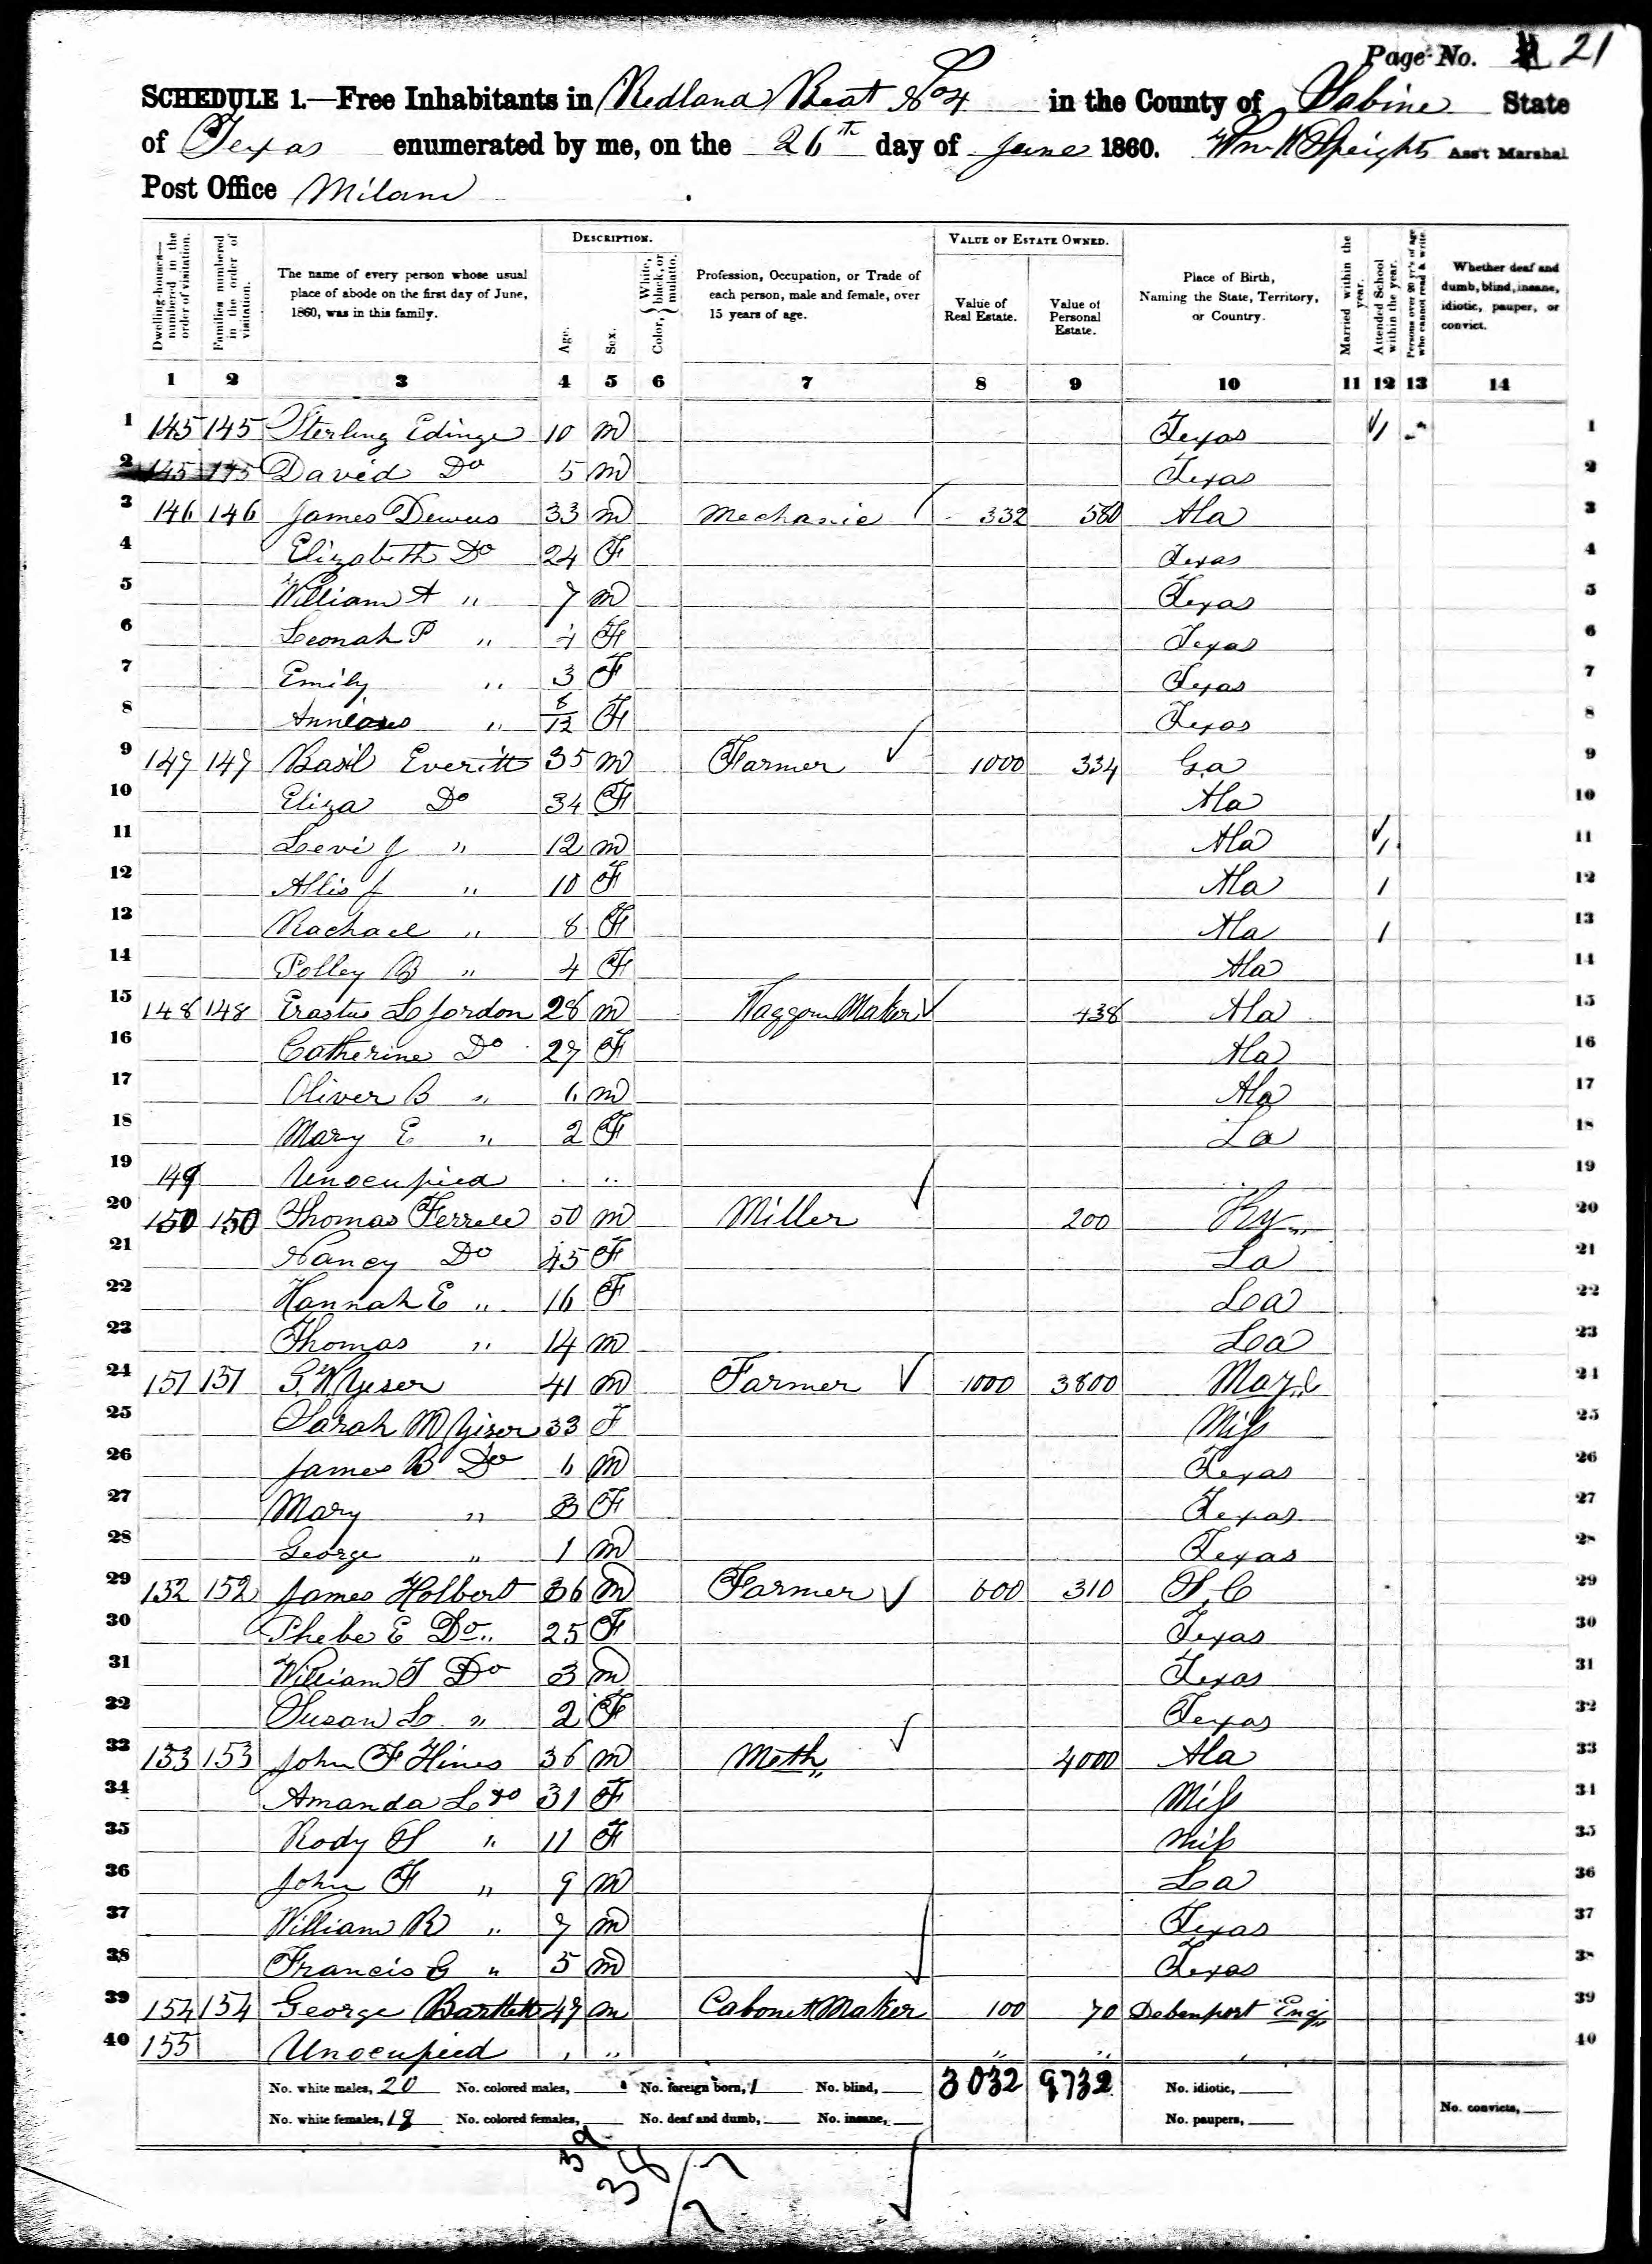 Page No. 21
SCHEDULE 1.—Free Inhabitants in Redland Beat No 4 in the County of Sabine State
of Texas enumerated by me, on the 26th day of June 1860. Wm W Speights Ass't Marshal
Post Office Milam
Dwelling-houses—numbered in the order of visitation.
Families numbered in the order of visitation.
The name of every person whose usual place of abode on the first day of June, 1860, was in this family.
DESCRIPTION.
Age.
Sex.
Color, White, black, or mulatto.
Profession, Occupation, or Trade of each person, male and female, over 15 years of age.
VALUE OF ESTATE OWNED.
Value of Real Estate.
Value of Personal Estate.
Place of Birth, Naming the State, Territory, or Country.
Married within the year.
Attended School within the year.
Persons over 20 yr's of age who cannot read & write.
Whether deaf and dumb, blind, insane, idiotic, pauper, or convict.
1 2 3 4 5 6 7 8 9 10 11 12 13 14
1 145 145 Sterling Edinge 10 m Texas 1 1
2 145 145 David Do 5 m Texas 2
3 146 146 James Dewus 33 m Mechanic 332 560 Ala 3
4 Elizabeth Do 24 F Texas 4
5 William A " 7 m Texas 5
6 Leonah P " 4 F Texas 6
7 Emily " 3 F Texas 7
8 " 8/12 F Texas 8
9 147 147 Basil Everitt 35 m Farmer 1000 334 Ga 9
10 Eliza Do 34 F Ala 10
11 Levi J " 12 m Ala 1 11
12 Allis J " 10 F Ala 1 12
13 Rachael " 8 F Ala 1 13
14 Polley B " 4 F Ala 14
15 148 148 Erastus L Jordon 28 m Waggon Maker 438 Ala 15
16 Catherine Do 27 F Ala 16
17 Oliver B " 6 m Ala 17
18 Mary E " 2 F La 18
19 149 Unocupied 19
20 150 150 Thomas Ferrell 50 m Miller 200 Ky 20
21 Nancy Do 45 F La 21
22 Hannah E " 16 F Loa 22
23 Thomas " 14 m Loa 23
24 151 151 G. W Yiser 41 m Farmer 1000 3800 24
25 Sarah M Yiser 33 F Miss 25
26 James B Do 6 m Texas 26
27 Mary " 3 F Texas 27
28 George " 1 m Texas 28
29 152 152 James Holbert 36 m Farmer 600 310 S. C 29
30 Phebe E Do 25 F Texas 30
31 William T Do 3 m Texas 31
32 Susan L " 2 F Texas 32
33 153 153 John F Hines 36 m Meth 4000 Ala 33
34 Amanda L Do 31 F Miss 34
35 Rody S " 11 F Miss 35
36 John F " 9 m La 36
37 William R " 7 m Texas 37
38 Francis G " 5 m Texas 38
39 154 154 George Bartlett 47 m Cabonet Maker 100 70 Debenport Eng 39
40 155 Unocupied 40
No. white males, 20 No. colored males, No. foreign born, 1 No. blind, 3032 9732 No. idiotic,
No. white females, 18 No. colored females, No. deaf and dumb, No. insane, No. paupers, No. convicts,
39
38